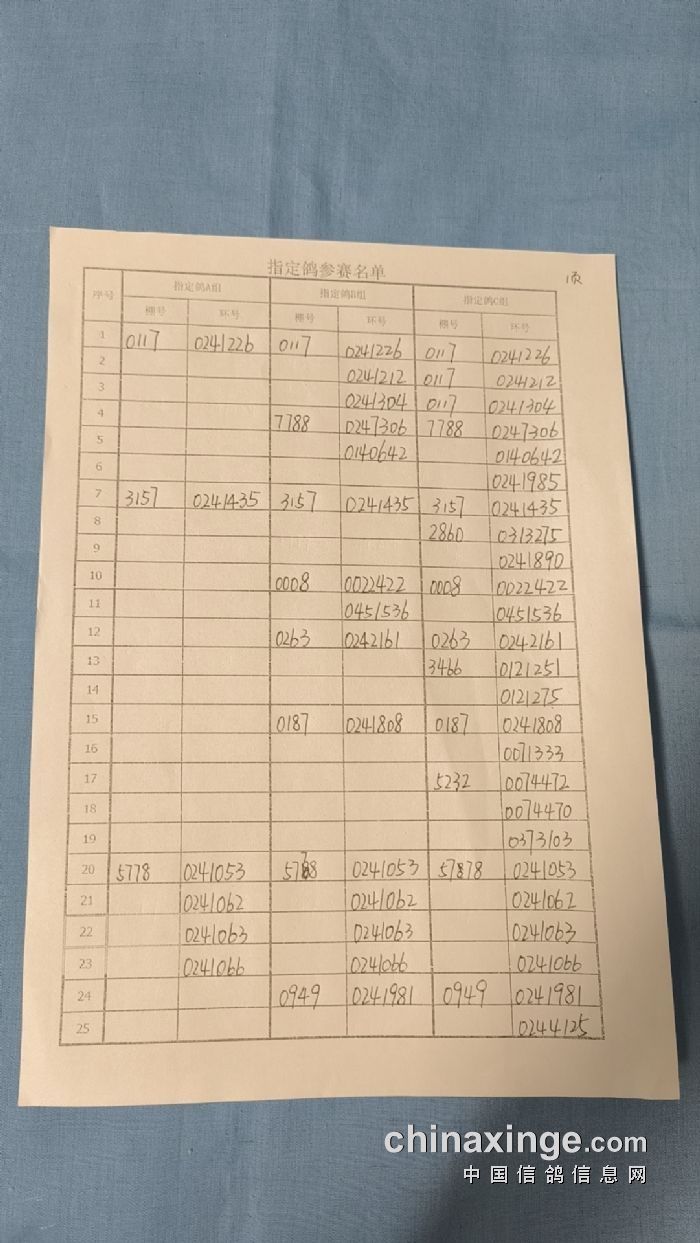 指定鸽参赛名单
1页
序号 指定鸽A组 指定鸽B组 指定鸽C组
棚号 环号 棚号 环号 棚号 环号
1 0117 0241226 0117 0241226 0117 0241226
2 0241212 0117 0241212
3 0241304 0117 0241304
4 7788 0247306 7788 0247306
5 0140642 0140642
6 0241985
7 3157 0241435 3157 0241435 3157 0241435
8 2860 0313275
9 0241890
10 0008 0022422 0008 0022422
11 0451536 0451536
12 0263 0242161 0263 0242161
13 3466 0121251
14 0121275
15 0187 0241808 0187 0241808
16 0071333
17 5232 0074472
18 0074470
19 0373103
20 5778 0241053 0241053 0241053
21 0241062 0241062 0241062
22 0241063 0241063 0241063
23 0241066 0241066 0241066
24 0949 0241981 0949 0241981
25 0244125
chinaxinge.com
中国信鸽信息网